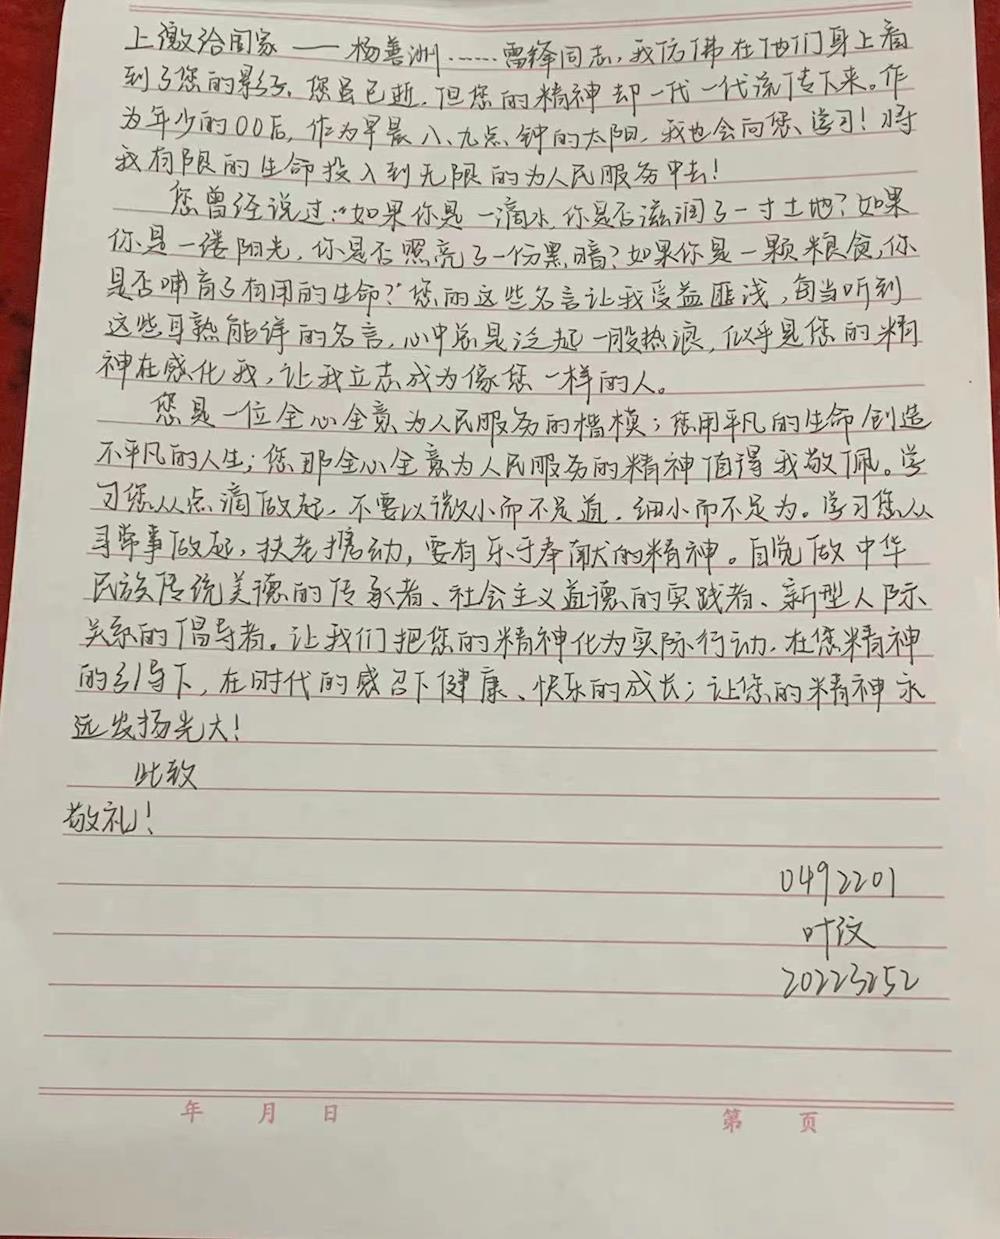 上缴给国家——杨善洲……雷锋同志,我仿佛在他们身上看
到了您的影子。您虽已逝,但您的精神却一代一代流传下来。作
为年少的00后,作为早晨八、九点钟的太阳,我也会向您学习!将
我有限的生命投入到无限的为人民服务中去!
您曾经说过:“如果你是一滴水,你是否滋润了一寸土地?如果
你是一缕阳光,你是否照亮了一份黑暗?如果你是一颗粮食,你
是否哺育了有用的生命?”您的这些名言让我受益匪浅,每当听到
这些耳熟能详的名言,心中总是泛起一股热浪,似乎是您的精
神在感化我,让我立志成为像您一样的人。
您是一位全心全意为人民服务的楷模;您用平凡的生命创造
不平凡的人生;您那全心全意为人民服务的精神值得我敬佩。学
习您从点滴做起,不要以微小而不足道,细小而不足为。学习您从
寻常事做起,扶老携幼,要有乐于奉献的精神。自觉做中华
民族传统美德的传承者、社会主义道德的实践者、新型人际
关系的倡导者。让我们把您的精神化为实际行动,在您精神
的引导下,在时代的感召下健康、快乐的成长;让您的精神永
远发扬光大!
此致
敬礼!
0492201
叶汶
20223252
年 月 日 第 页